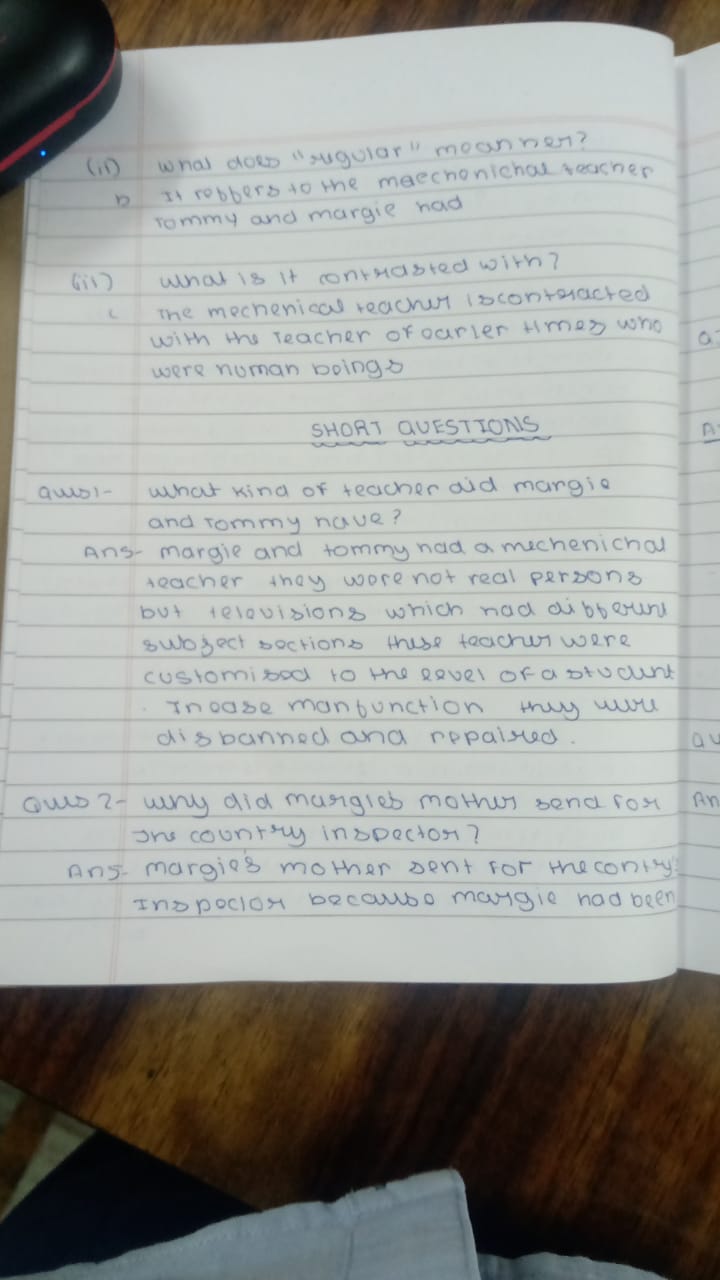 (ii) what does "regular" mean ner?
b It robbers to the maechenichal teacher
Tommy and margie had
(iii) what is it contrasted with?
c The mechenical teacher is contoracted
with the Teacher of oarler times who
were human boings
SHORT QUESTIONS
Ques1- what kind of teacher did margie
and Tommy have?
Ans- margie and tommy had a mechenichal
teacher they wore not real persons
but televisions which had different
subject soctions these teacher were
customisod to the level of a student
. In case manfunction they were
disbanned and repaired.
Ques 2- why did margies mother send for
the country inspector?
Ans- margie's mother sent for the contry
Inspoctor becauso margie had been
a
A
Qu
An